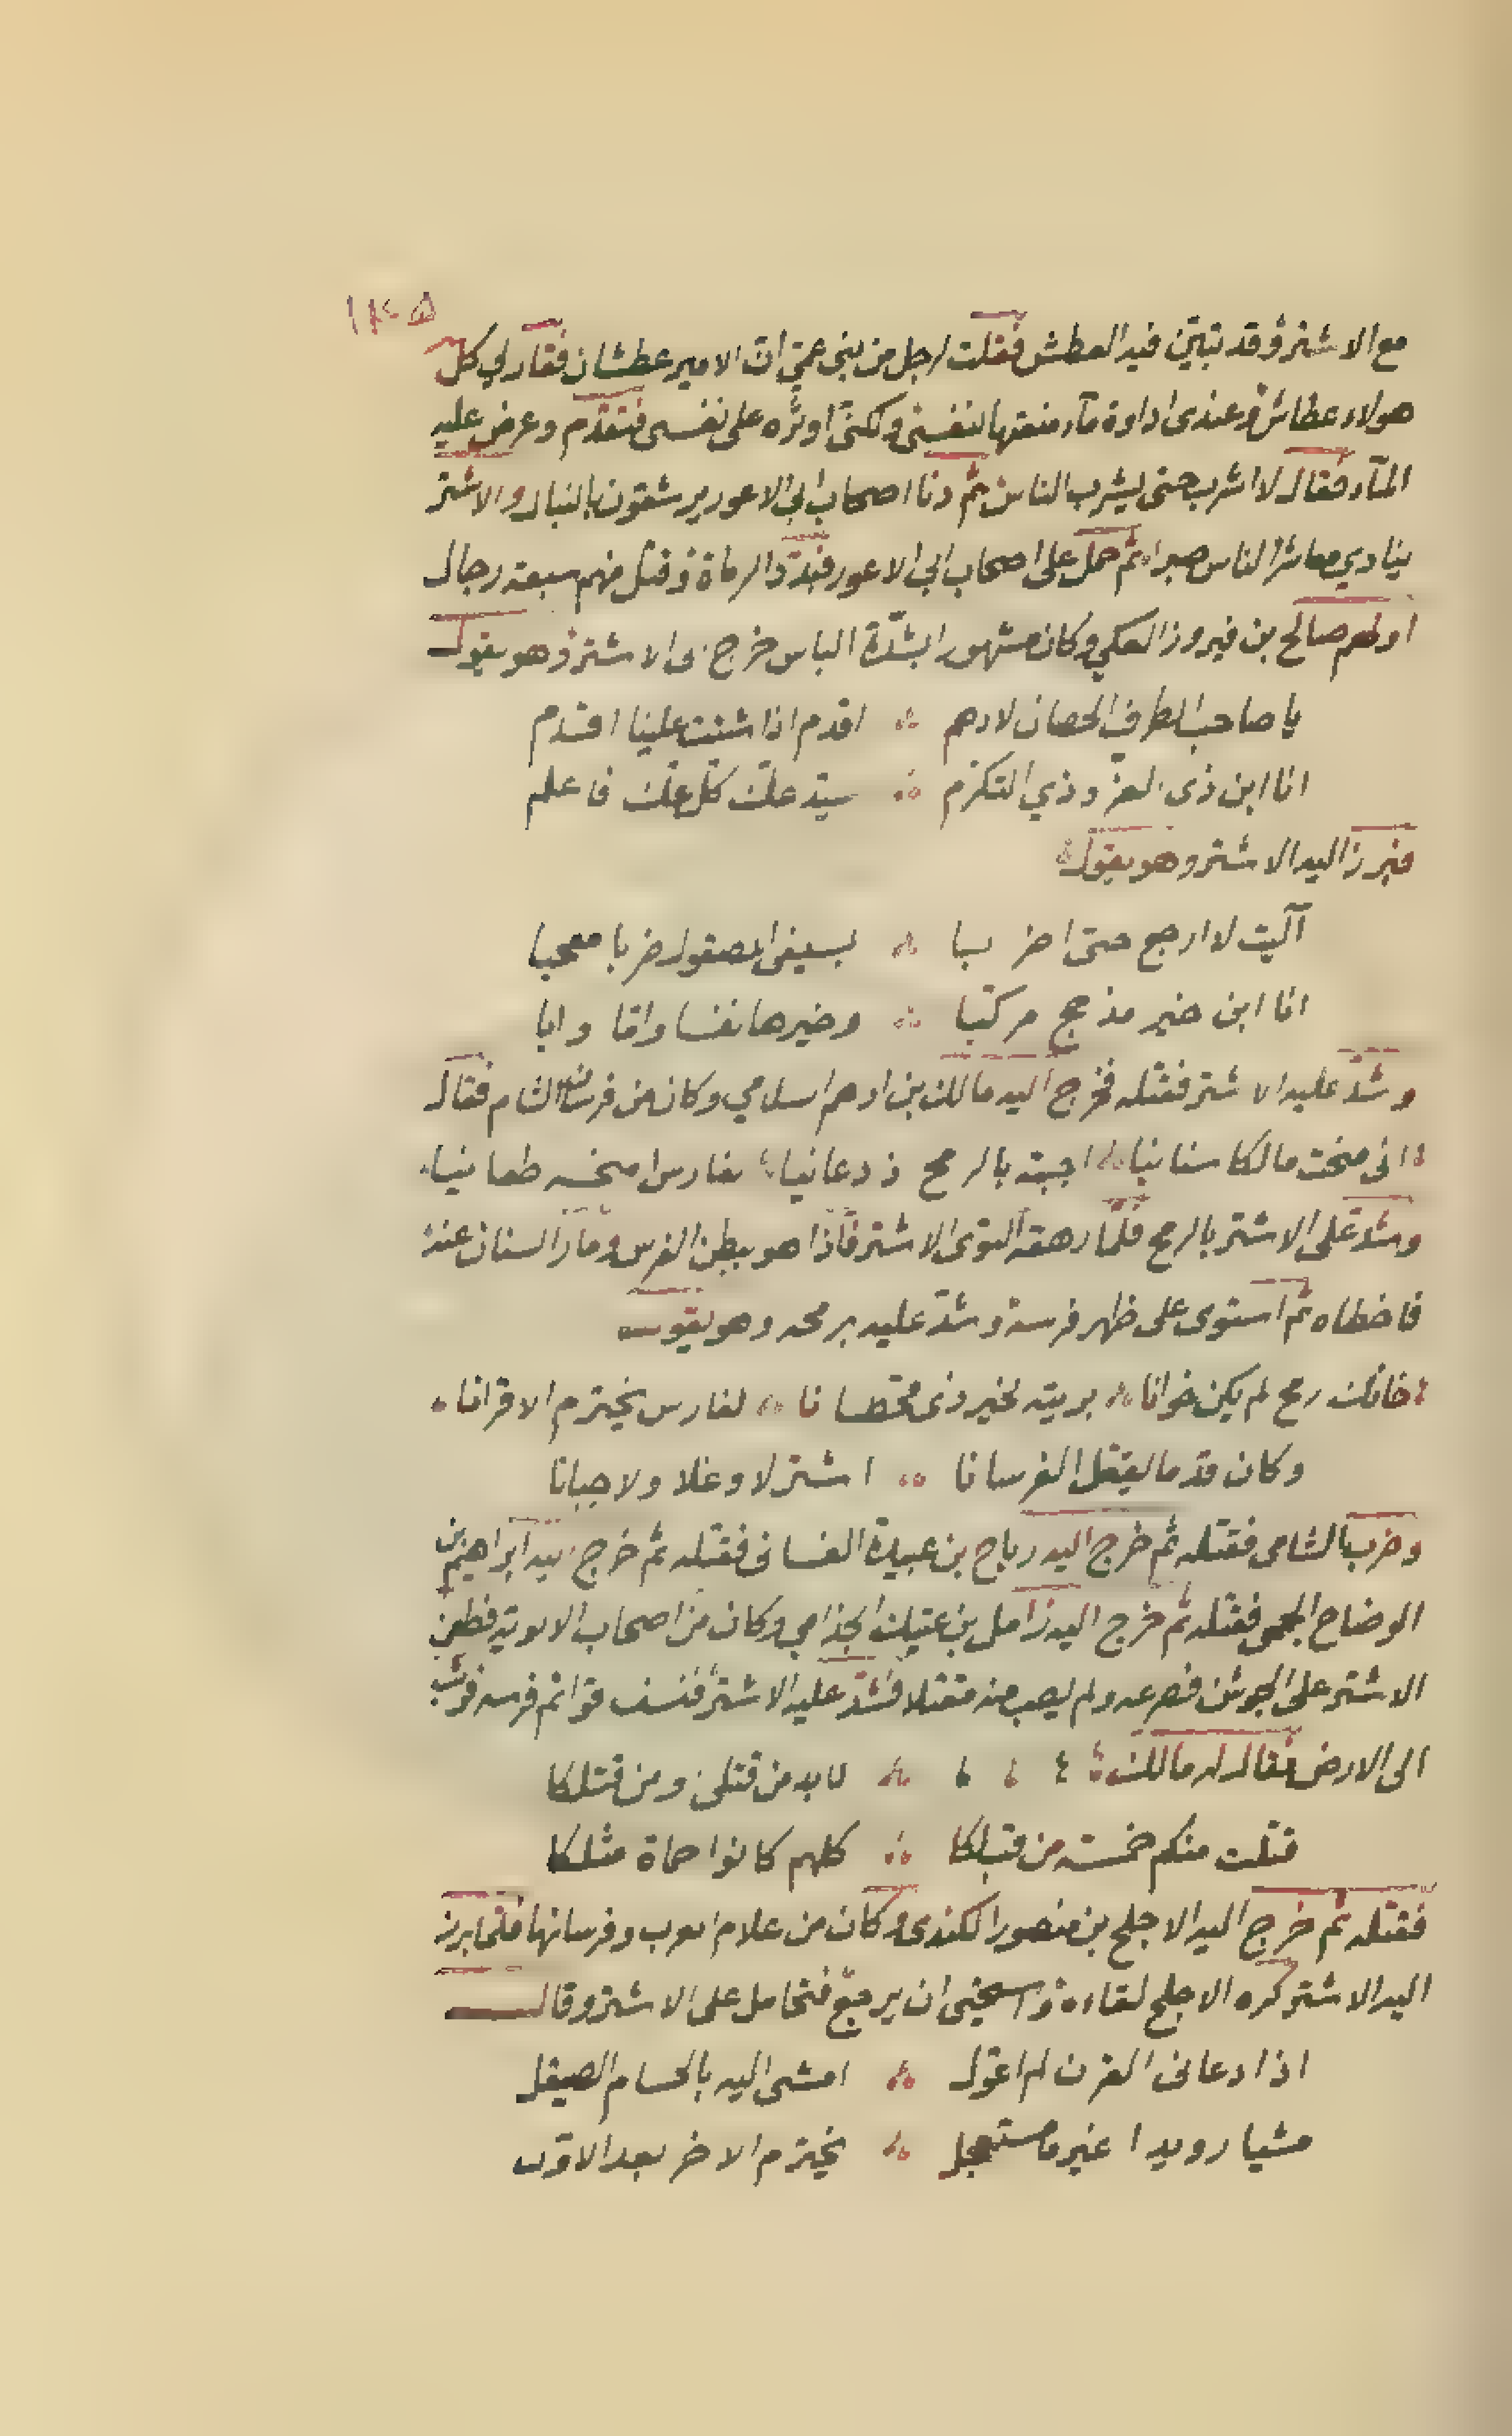 ١٢٥
مع الاشتر وقد تبيّن فيه العطش فقلت لرجل من بني عمّي انّ الامير عطشان فقال لي كلّ
هولاء عطاش وعندى اداوة مآء منعتها لنفسى ولكنّى اوثره على نفسى فتقدّم وعرض عليه
المآء فقال لا اشرب حتى يشرب الناس ثم دنا اصحاب ابي الاعور يرشقون بالنبال والاشتر
ينادي معاشر الناس صبرا ثم حمل على اصحاب ابي الاعور فردّ الرماة وقتل منهم سبعة رجال
اولهم صالح بن فيروز العكي وكان مشهورا بشدّة الباس خرج الى الاشتر وهو يقول
يا صاحب الطرف الحصان لادهم ؞ اقدم اذا شئت علينا اقدم
انا ابن ذى العزّ وذي التكرّم ؞ سيّد عكّ كلّ عكّ فاعلم
فبرز اليه الاشتر وهو يقول
آليت لا ارجع حتى اضربا ؞ بسيفى المصقول ضربا معجبا
انا ابن خير مذحج مركّبا ؞ وخيرها نفسا وامّا وابا
وشدّ عليه الاشتر فقتله فخرج اليه مالك بن ادهم اسلامي وكان من فرسان الشام فقال
انى منحت مالكا سنانيا ؞ اجبته بالرمح اذ دعانيا ؞ لفارس امنحه طعانيا
وشدّ على الاشتر بالرمح فلمّا رهقه التوى الاشتر فاذا هو ببطن الفرس ومار السنان عنه
فاخطاه ثم استوى على ظهر فرسه وشدّ عليه برمحه وهو يقول
خانك رمح لم يكن خوانا ؞ بريته لخير ذى قحطانا ؞ لفارس يخترم الاقرانا
وكان قدما يقتل الفرسانا ؞ اشتر لا وغلا ولا جبانا
وضرب الشامى فقتله ثم خرج اليه رباح بن عبيدة الغسانى فقتله ثم خرج اليه ابراهيم بن
الوضاح الجمحى فقتله ثم خرج اليه زامل بن عتيك الجذامي وكان من اصحاب الالوية فطعن
الاشتر على الجوشن فصرعه ولم يصب منه مقتلا فشدّ عليه الاشتر فنسف قوائم فرسه فوثب
الى الارض فقال له مالك ؞ لا بد من قتلى ومن قتلكا
قتلت منكم خمسة من قبلكا ؞ كلهم كانوا حماة مثلكا
فقتله ثم خرج اليه الاجلح بن منصور الكندى وكان من علام العرب وفرسانها فلمّا برز
اليه الاشتر كره الاجلح لقاءه واستحيى ان يرجع فتحامل على الاشتر وقال
اذا دعانى القرن لم اعوّل ؞ امشى اليه بالحسام الصيقل
مشيا رويدا غير ما مستعجل ؞ يخترم الاخر بعد الاوّل